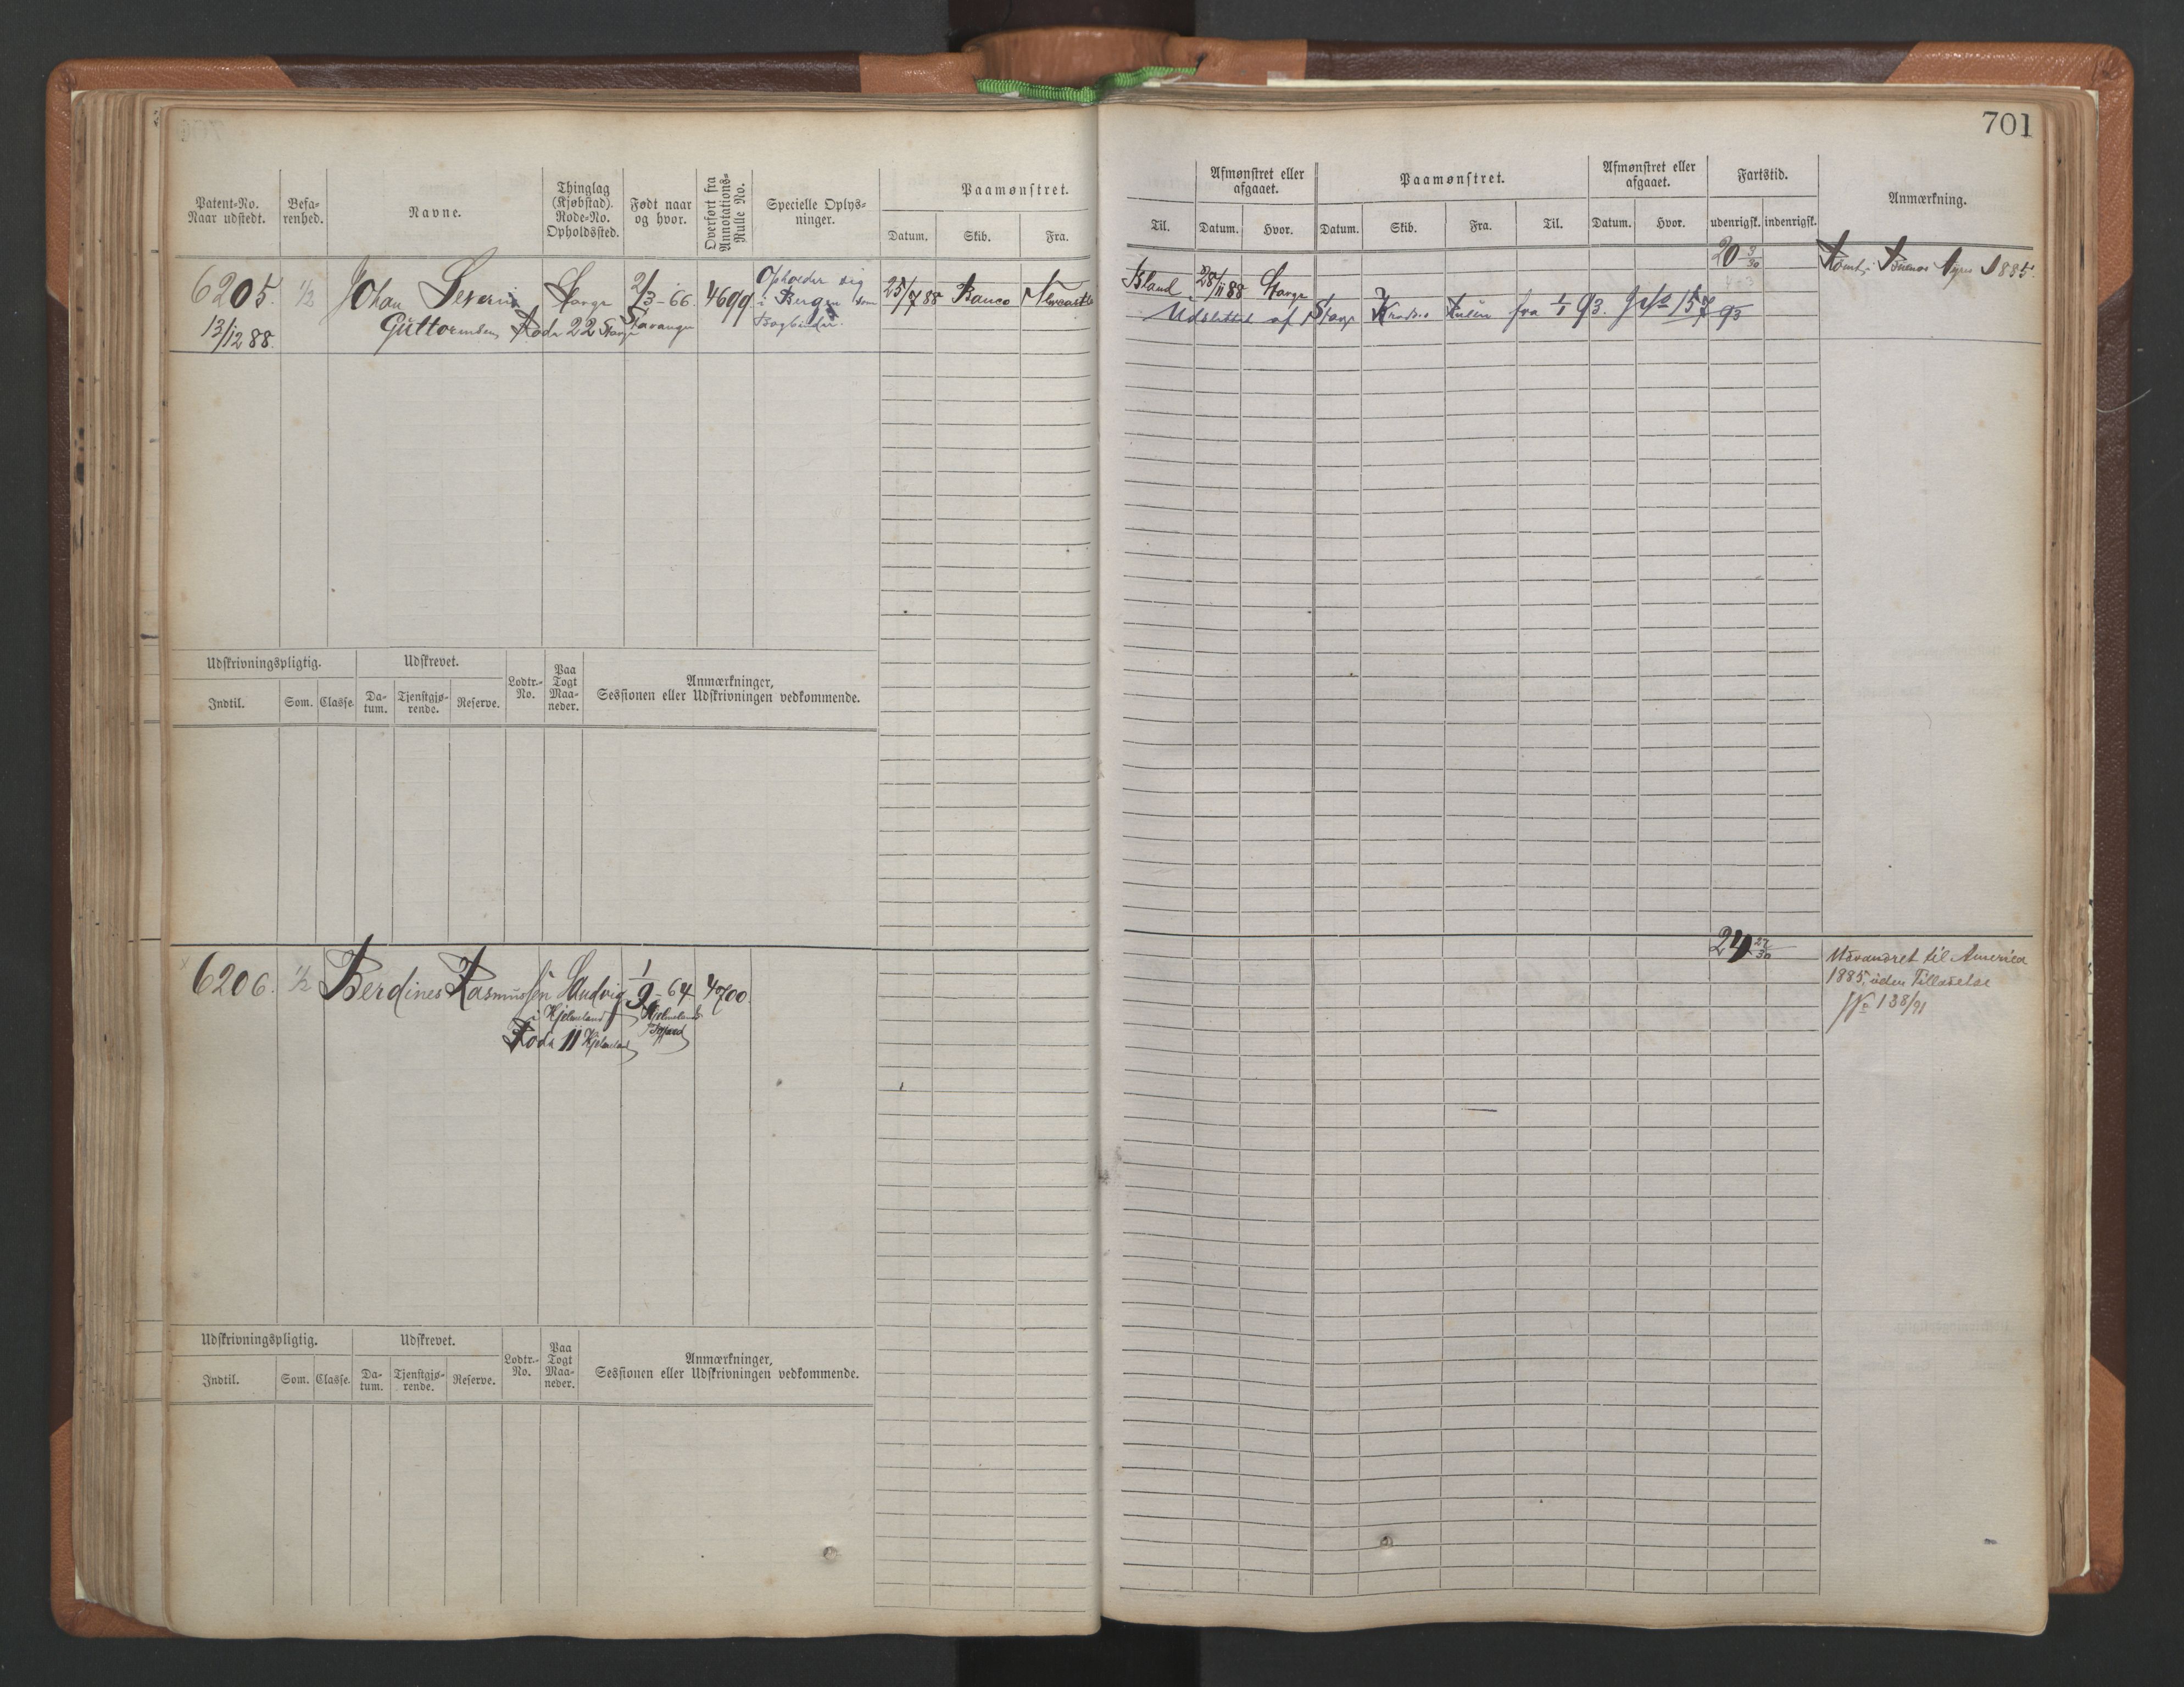 701
Patent-No.
Naar udstedt.
Befa-
renhed.
Navne.
Thinglag
(Kjøbstad).
Rode-No.
Opholdssted.
Født naar
og hvor.
Overført fra
Annotations-
Rulle No.
Specielle Oplys-
ninger.
Paamønstret.
Datum.
Skib.
Fra.
Til.
Afmønstret eller
afgaaet.
Datum.
Hvor.
Paamønstret.
Datum.
Skib.
Fra.
Til.
Afmønstret eller
afgaaet.
Datum.
Hvor.
Fartstid.
udenrigsk.
indenrigsk.
Anmærkning.
6205.
13/12 88.
1/2
Johan Severin
Guttormsen
Stavgr
Rode 22 Stavgr
2/3-66
Stavanger
4699
Opholder sig
i Bergen som
Bogbinder.
25/7 88
Banco
Newcastle
Island
28/11 88
Stavgr
20 3/30
Rømt i Buenos Ayres 1885.
Udslettet af Stavgr Krads Rullen fra 1/1 93. 157/93
Udskrivningspligtig.
Indtil.
Som.
Classe
Udskrevet.
Da-
tum.
Tjenstgjø-
rende.
Reserve.
Lodtr.-
No.
Paa
Togt
Maa-
neder.
Anmærkninger,
Sessionen eller Udskrivningen vedkommende.
6206.
1/2
Berdines Rasmussen Sandvig
i Hjelmeland
Rode 11 Hjelmeland
1/9-64
Hjelmeland
4700
24 27/30
Udvandret til America
1885, uden Tilladelse
No 138/91
Udskrivningspligtig.
Indtil.
Som.
Classe.
Udskrevet.
Da-
tum.
Tjenstgjø-
rende.
Reserve.
Lodtr.-
No.
Paa
Togt
Maa-
neder.
Anmærkninger,
Sessionen eller Udskrivningen vedkommende.